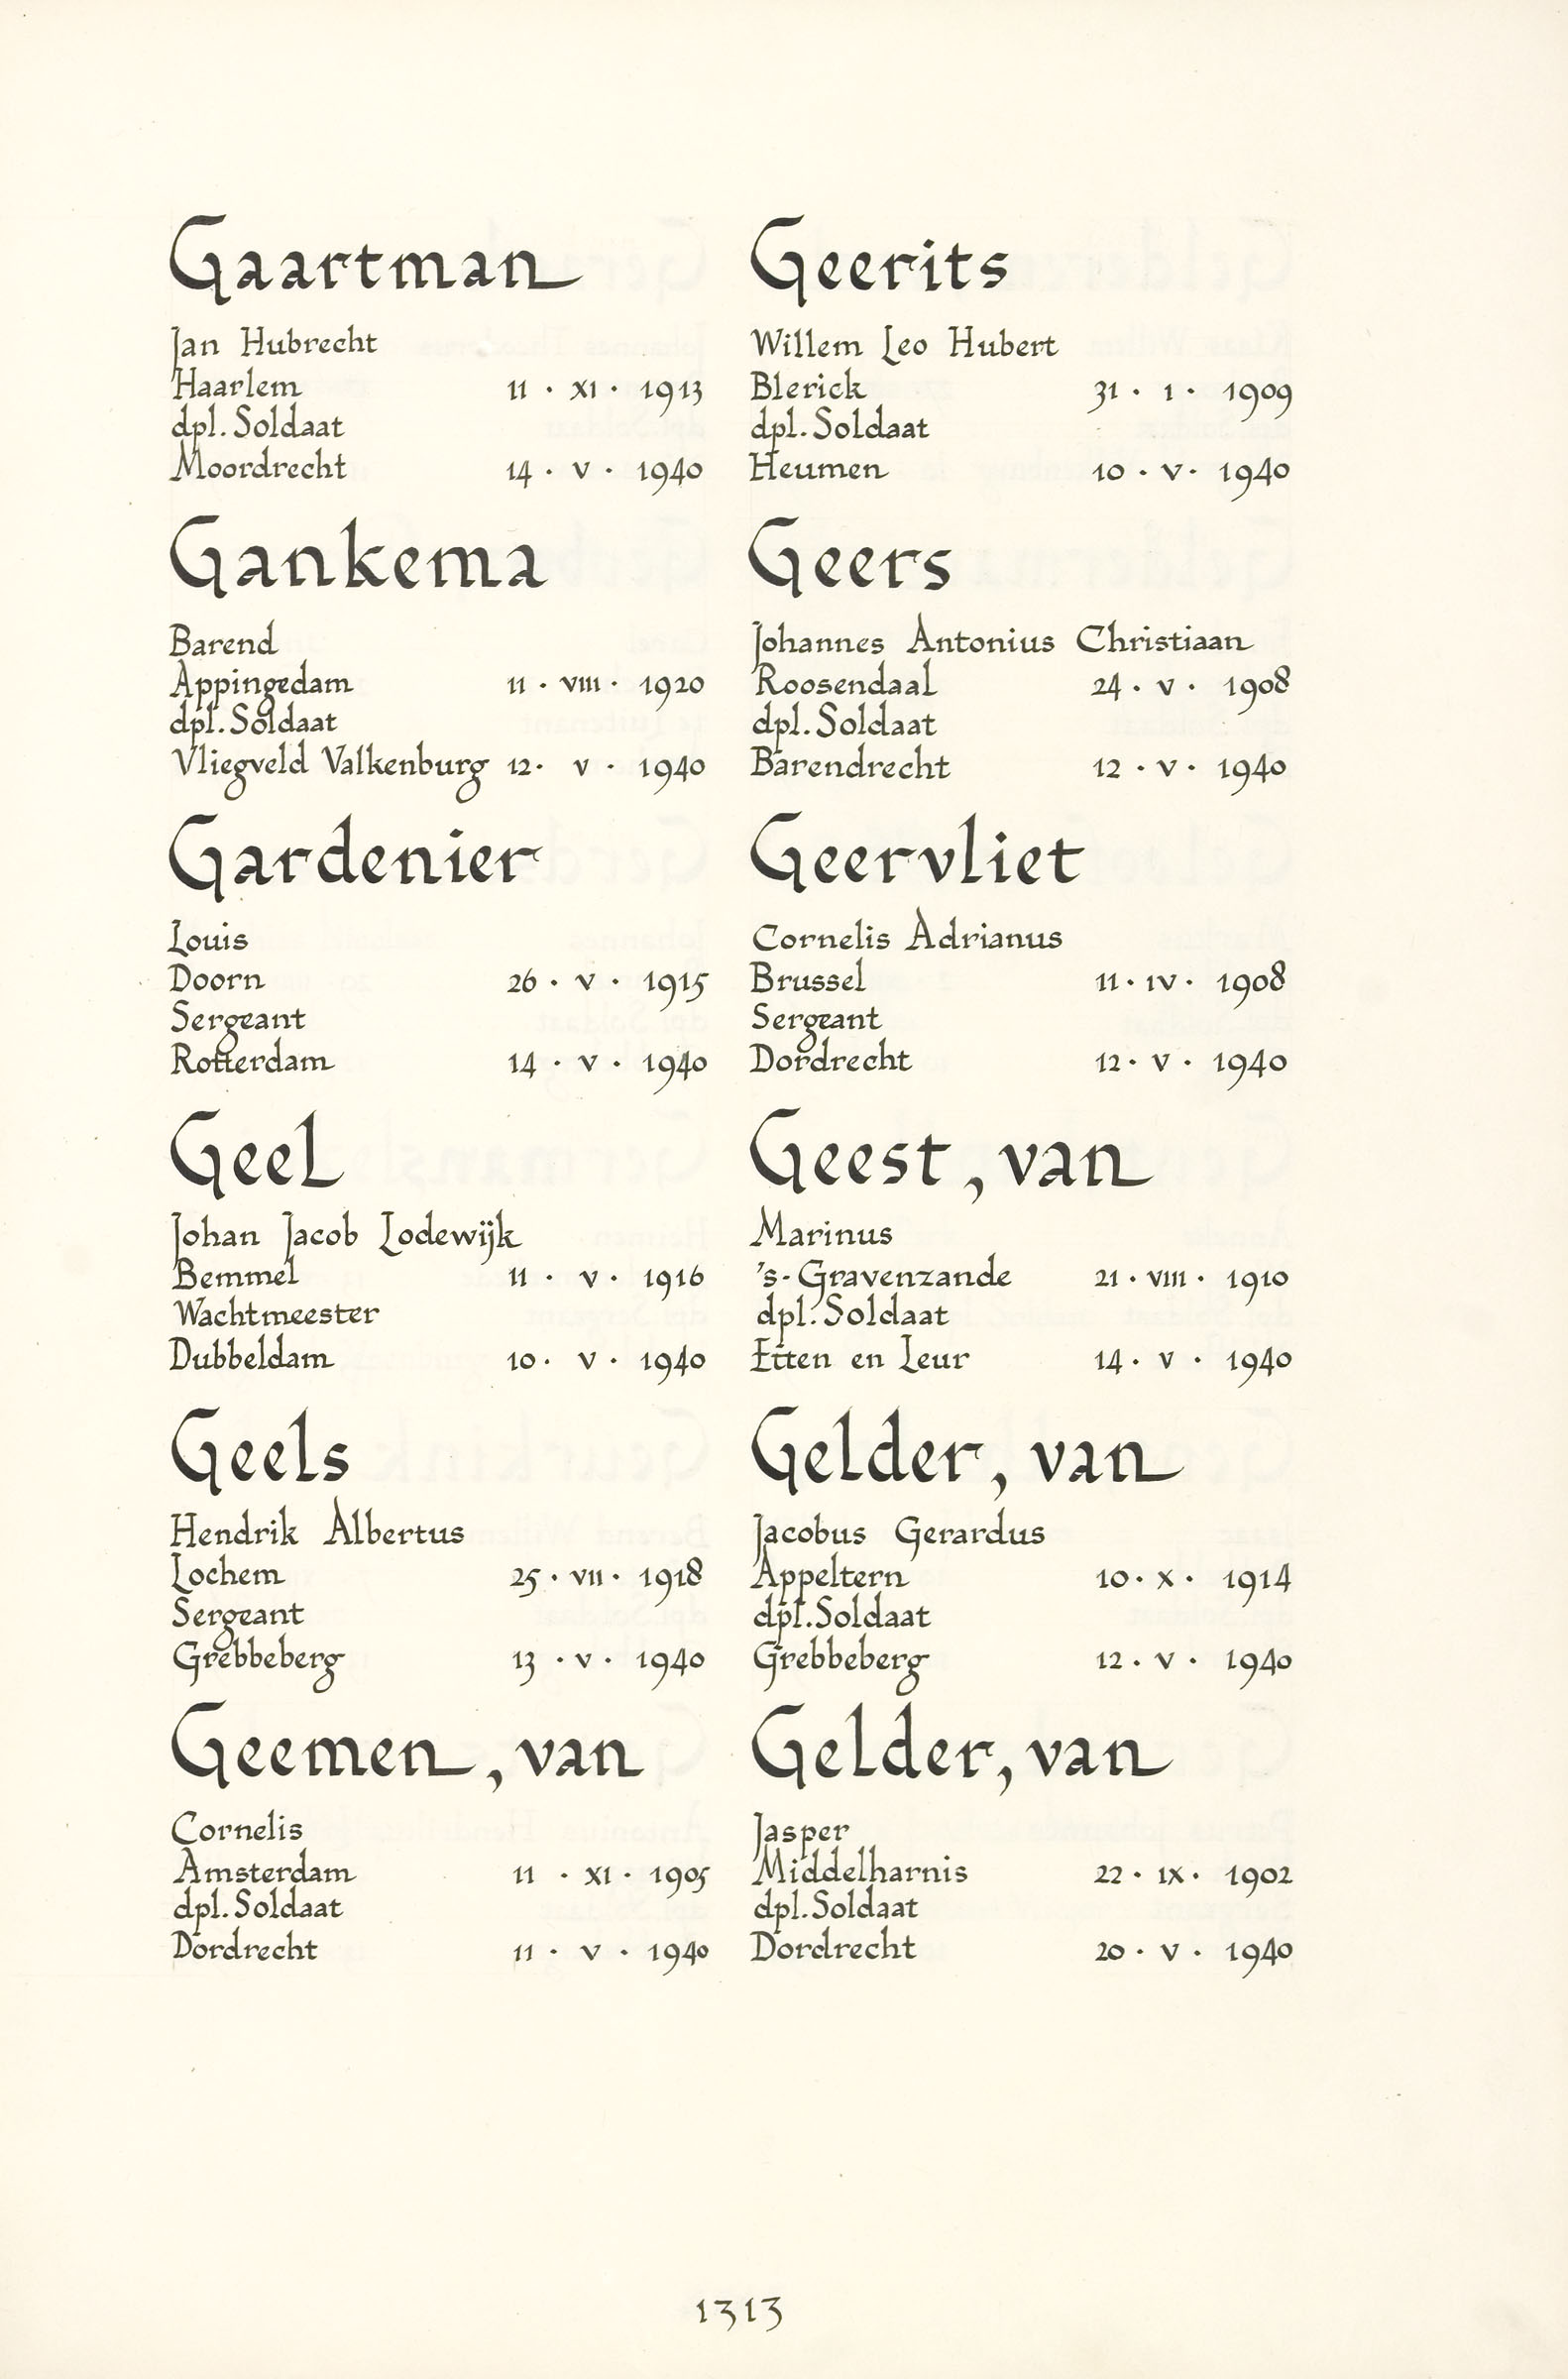 Gaartman
Jan Hubrecht
Haarlem 11 · XI · 1913
dpl. Soldaat
Moordrecht 14 · V · 1940
Gankema
Barend
Appingedam 11 · VIII · 1920
dpl. Soldaat
Vliegveld Valkenburg 12 · V · 1940
Gardenier
Louis
Doorn 26 · V · 1915
Sergeant
Rotterdam 14 · V · 1940
Geel
Johan Jacob Lodewijk
Bemmel 11 · V · 1916
Wachtmeester
Dubbeldam 10 · V · 1940
Geels
Hendrik Albertus
Lochem 25 · VII · 1918
Sergeant
Grebbeberg 13 · V · 1940
Geemen, van
Cornelis
Amsterdam 11 · XI · 1905
dpl. Soldaat
Dordrecht 11 · V · 1940
Geerits
Willem Leo Hubert
Blerick 31 · I · 1909
dpl. Soldaat
Heumen 10 · V · 1940
Geers
Johannes Antonius Christiaan
Roosendaal 24 · V · 1908
dpl. Soldaat
Barendrecht 12 · V · 1940
Geervliet
Cornelis Adrianus
Brussel 11 · IV · 1908
Sergeant
Dordrecht 12 · V · 1940
Geest, van
Marinus
's-Gravenzande 21 · VIII · 1910
dpl. Soldaat
Etten en Leur 14 · V · 1940
Gelder, van
Jacobus Gerardus
Appeltern 10 · X · 1914
dpl. Soldaat
Grebbeberg 12 · V · 1940
Gelder, van
Jasper
Middelharnis 22 · IX · 1902
dpl. Soldaat
Dordrecht 20 · V · 1940
1313